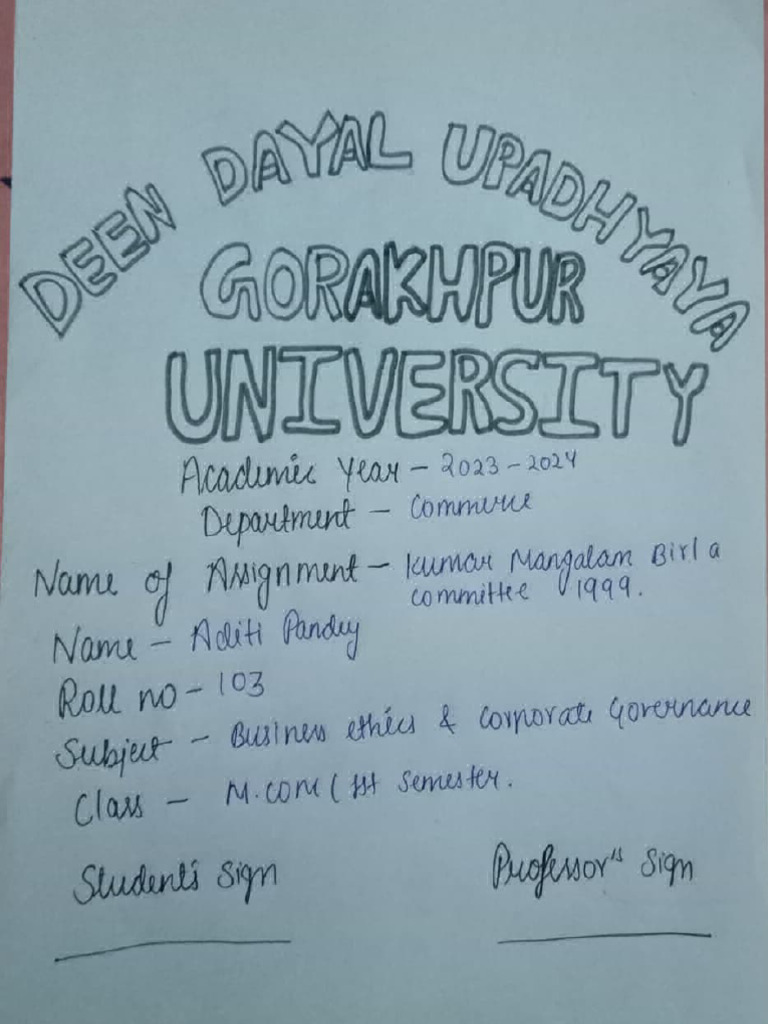 DEEN DAYAL UPADHYAYA
GORAKHPUR
UNIVERSITY
Academic Year - 2023-2024
Department - Commerce
Name of Assignment - Kumar Mangalam Birla
committee 1999.
Name - Aditi Pandey
Roll no - 103
Subject - Business ethics & Corporate Governance
Class - M.COM ( 1st Semester.
Student's Sign
Professor's Sign